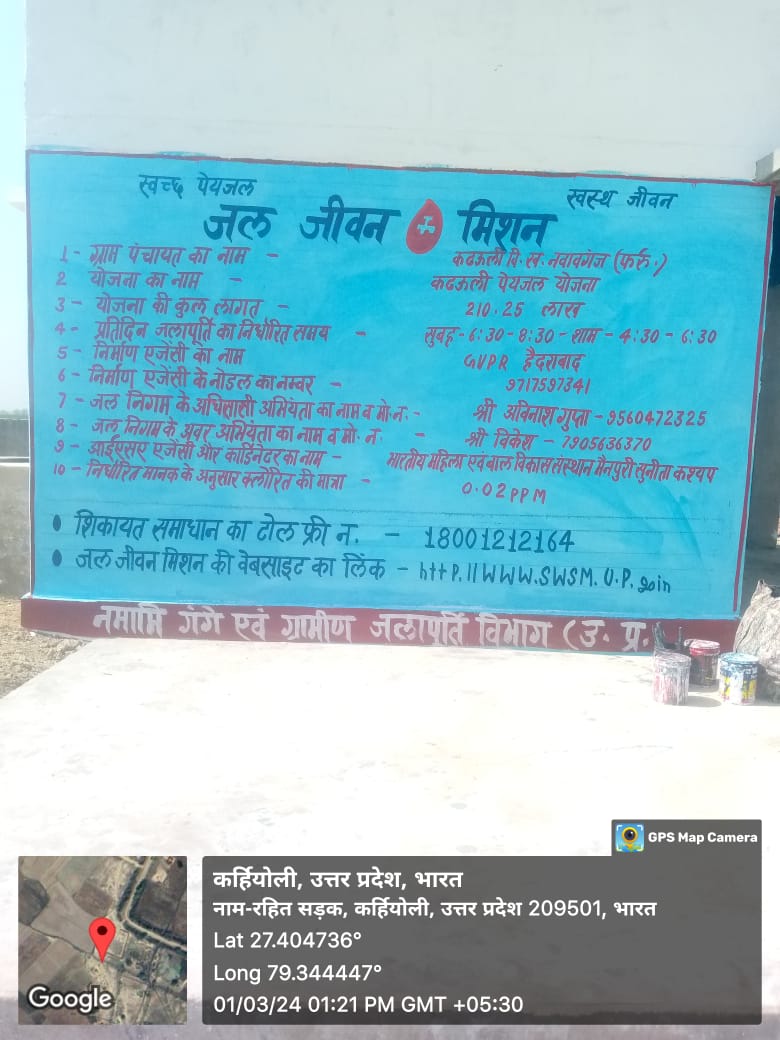 स्वच्छ पेयजल
स्वस्थ जीवन
जल जीवन मिशन
1- ग्राम पंचायत का नाम - कढऊली वि. ख. नवावगंज (फर्रु.)
2 योजना का नाम - कढऊली पेयजल योजना
3- योजना की कुल लागत - 210.25 लाख
4- प्रतिदिन जलापूर्ति का निर्धारित समय - सुबह-6:30-8:30-शाम-4:30-6:30
5- निर्माण एजेंसी का नाम GVPR हैदराबाद
6- निर्माण एजेंसी के नोडल का नम्बर - 9717597341
7- जल निगम के अधिसासी अभियंता का नाम व मो. न. - श्री अविनाश गुप्ता - 9560472325
8- जल निगम के अवर अभियंता का नाम व मो. न. - श्री विकेश - 7905636370
9- आईएसए एजेंसी और कार्डिनेटर का नाम - भारतीय महिला एवं बाल विकास संस्थान मैनपुरी सुनीता कश्यप
10- निर्धारित मानक के अनुसार क्लोरित की मात्रा - 0.02 PPM
• शिकायत समाधान का टोल फ्री न. - 18001212164
• जल जीवन मिशन की वेबसाइट का लिंक - http.//www.SWSM.U.P.goin
नमामि गंगे एवं ग्रामीण जलापूर्ति विभाग (उ. प्र.
GPS Map Camera
कर्हियोली, उत्तर प्रदेश, भारत
नाम-रहित सड़क, कर्हियोली, उत्तर प्रदेश 209501, भारत
Lat 27.404736°
Long 79.344447°
01/03/24 01:21 PM GMT +05:30
Google